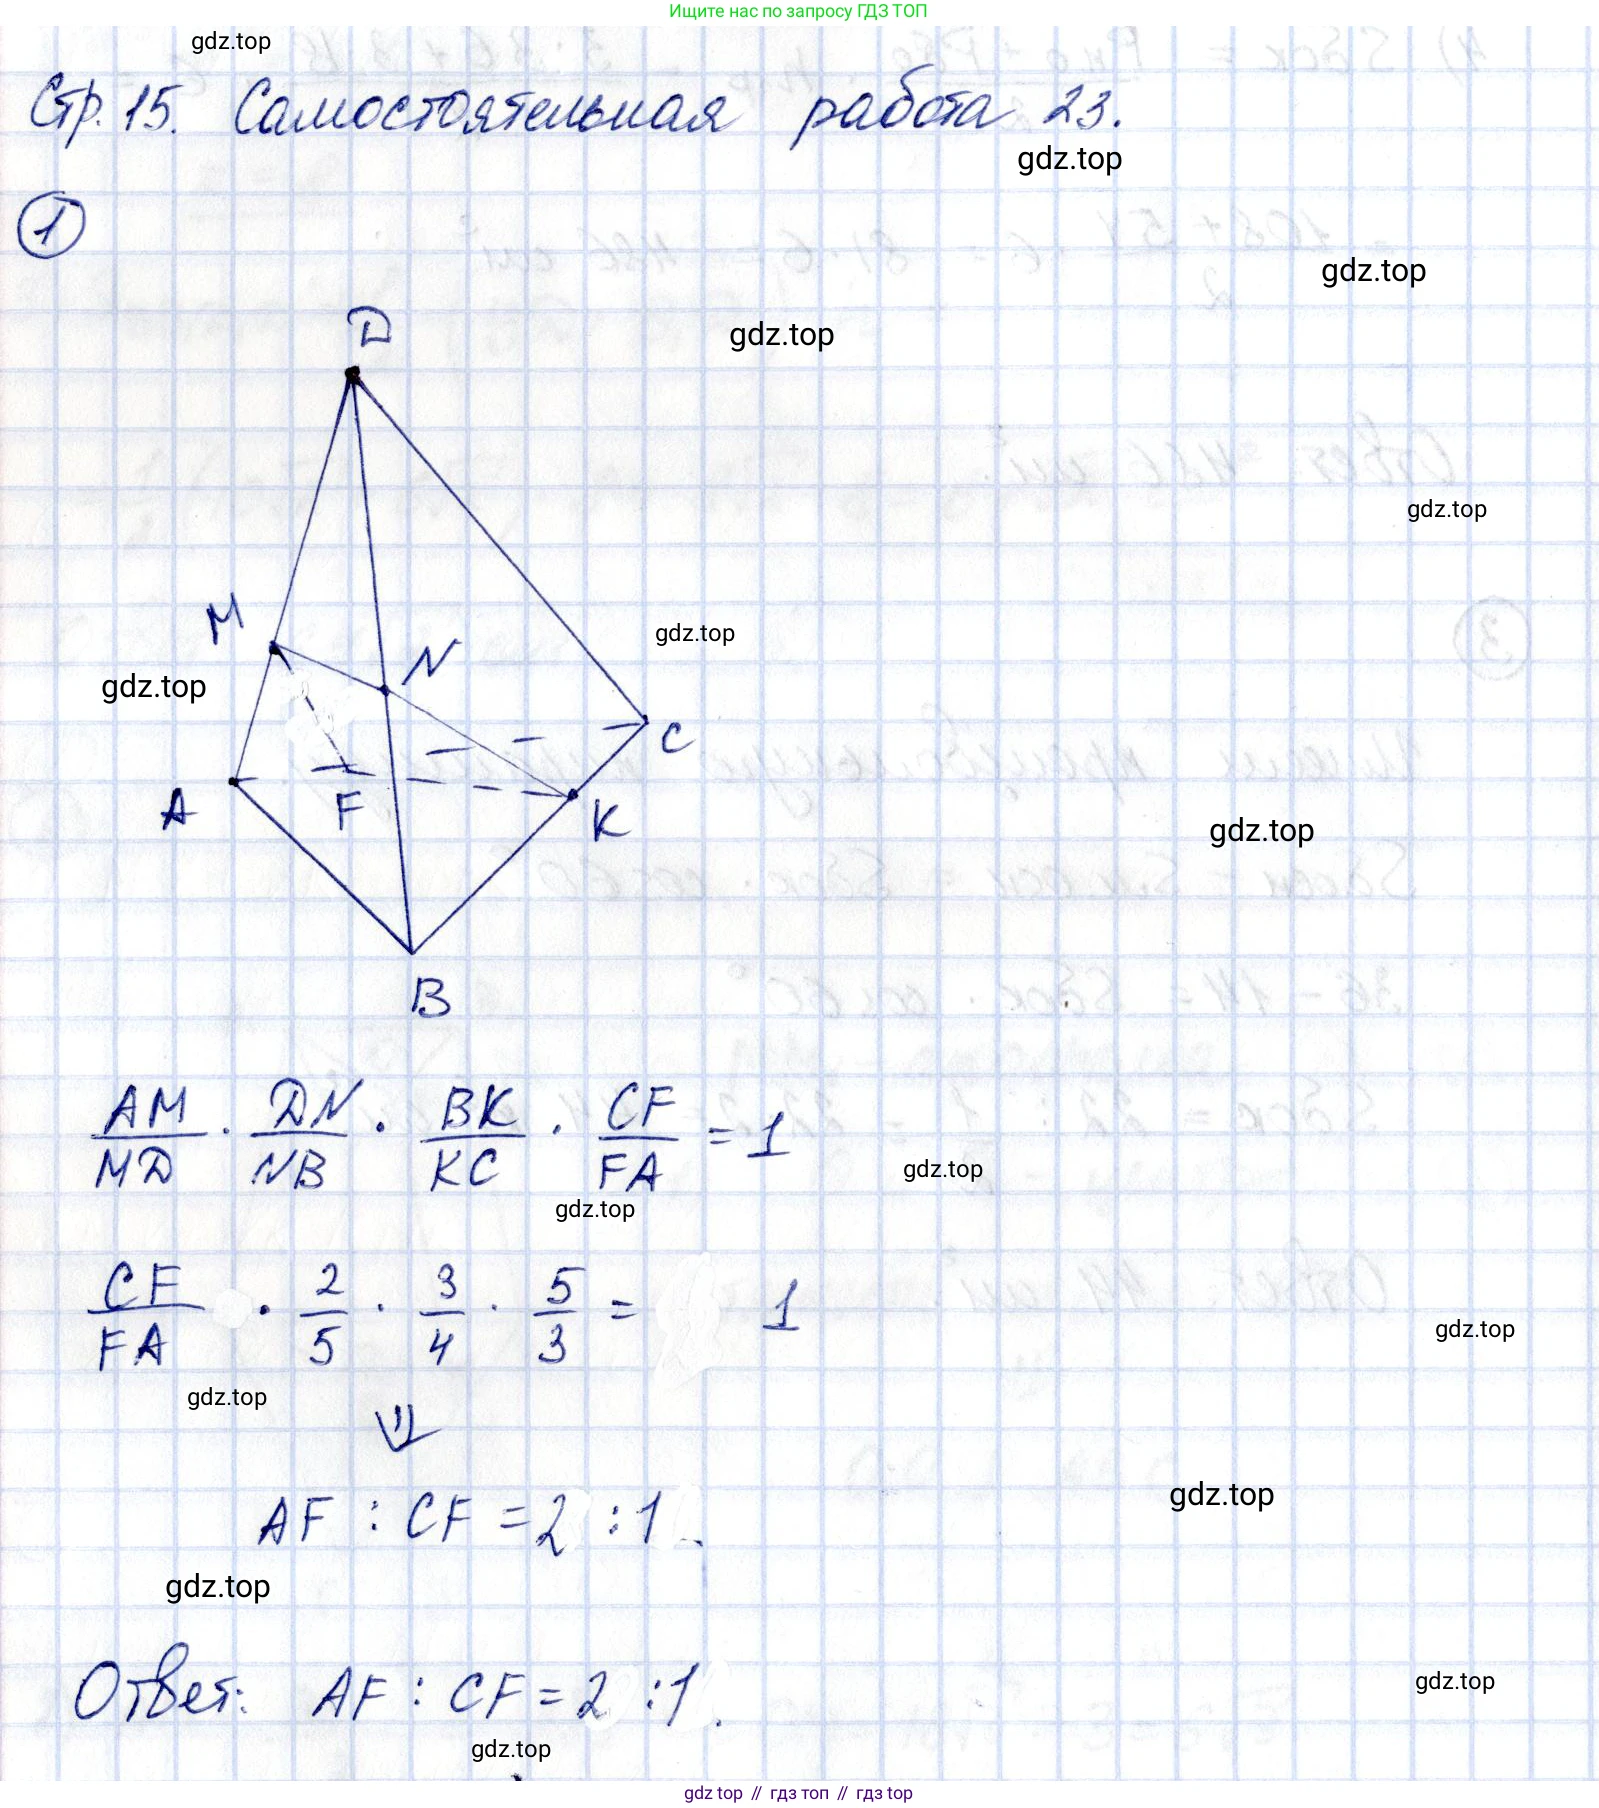 Ищите нас по запросу ГДЗ ТОП
gdz.top
Стр. 15. Самостоятельная работа 23.
gdz.top
1
gdz.top
D
gdz.top
gdz.top
M
N
gdz.top
gdz.top
C
A
F
K
gdz.top
gdz.top
B
AM/MD · DN/NB · BK/KC · CF/FA = 1
gdz.top
gdz.top
CF/FA · 2/5 · 3/4 · 5/3 = 1
gdz.top
gdz.top
⇓
gdz.top
AF : CF = 2 : 1.
gdz.top
Ответ: AF : CF = 2 : 1.
gdz.top
gdz.top
gdz top // гдз топ // гдз top